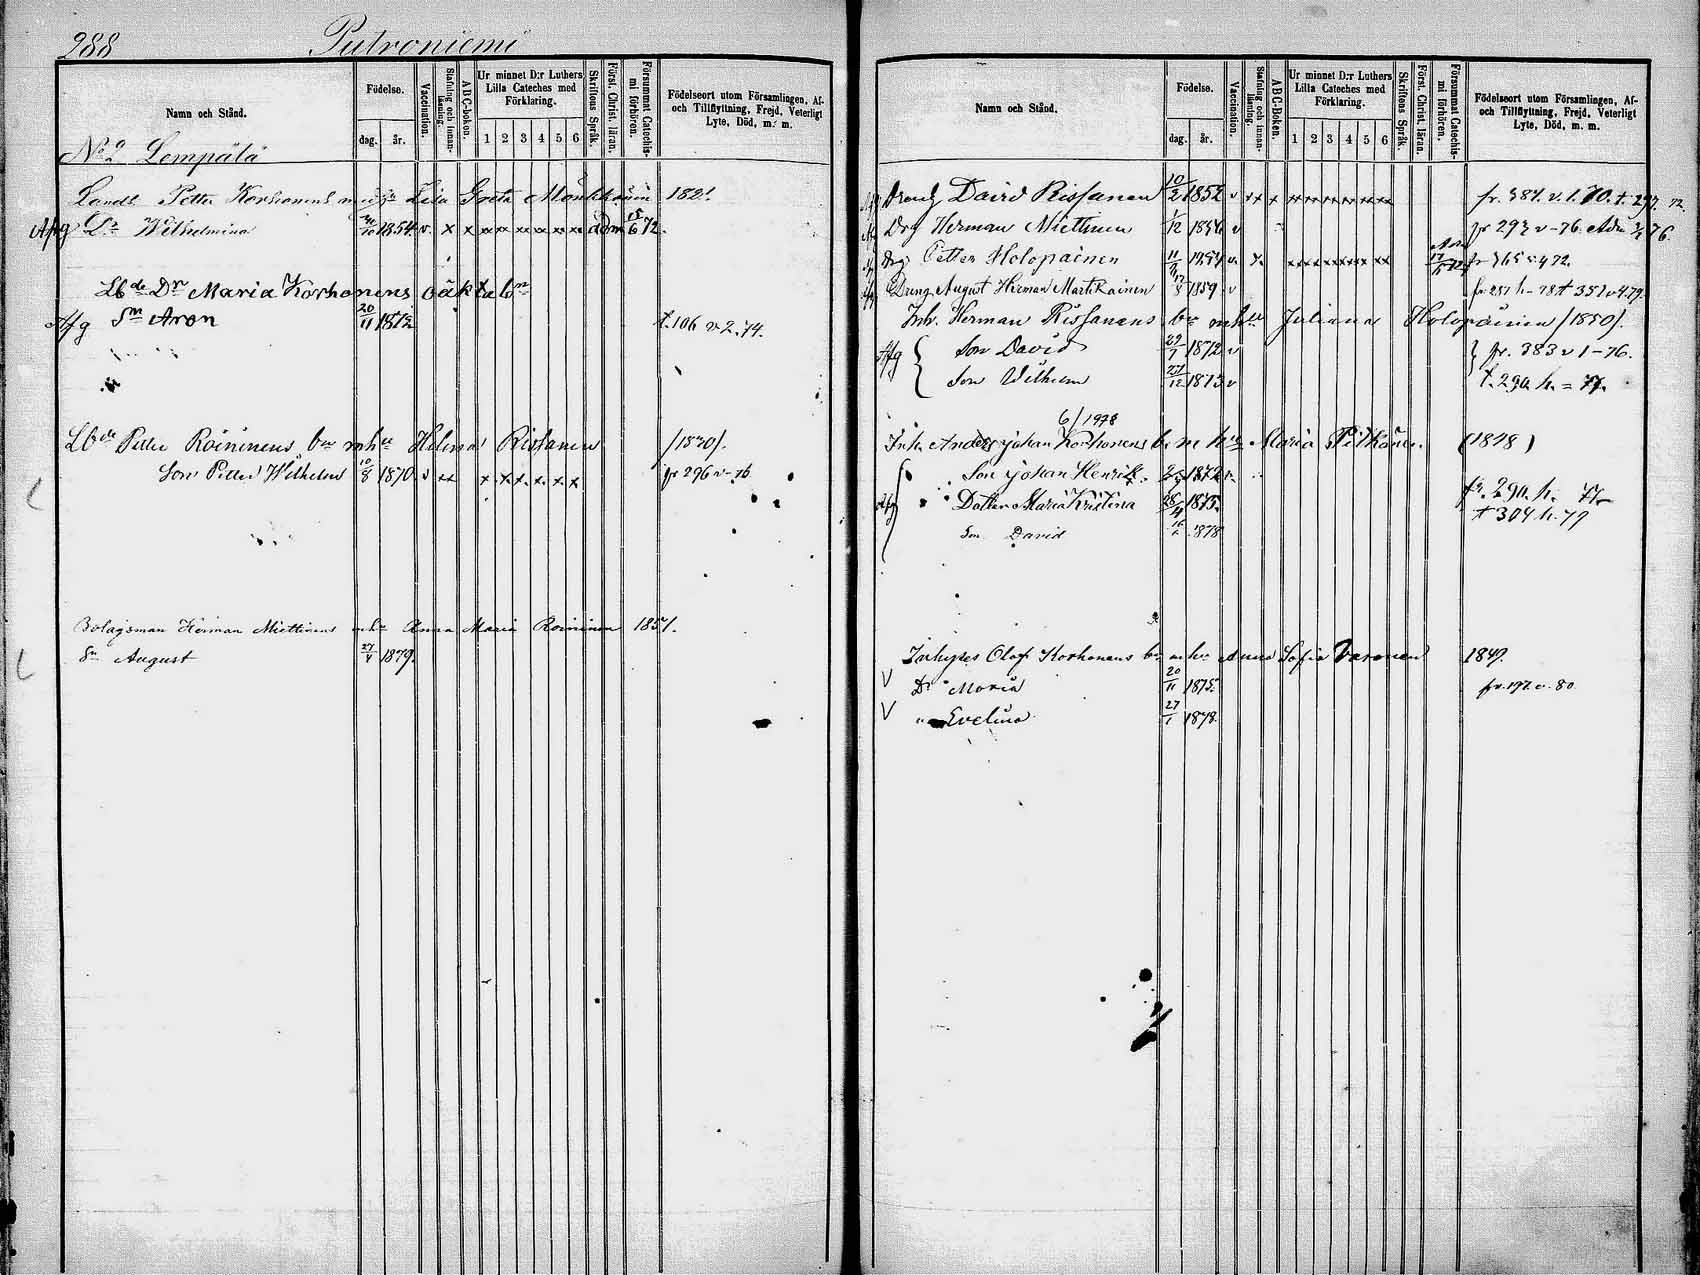 288 Putroniemi
Namn och Stånd.
Födelse.
dag. år.
Vaccination.
Stafning och innanläsning.
ABC-boken.
Ur minnet D:r Luthers Lilla Cateches med Förklaring.
1 2 3 4 5 6
Skriftens Språk.
Först. Christ. läran.
Försummat Catechismi förhören.
Födelseort utom Församlingen, Af- och Tillflyttning, Frejd, Veterligt Lyte, Död, m. m.
No 2 Lempälä
Petter Korhonens Lisa Greta Mönkkönen 182
Afg Dr Wilhelmina 10 1854 v. x x xx xx xx xx xx xx adm 15/6 72.
Lbde Dr Maria Korhonens oäkta bn
Afg Sn Aron 20/11 1872 t. 106 v 2. 74.
Petter Roininens bar mhu Helena Rissanen /1870/.
Son Petter Wilhelm 10/8 1870 v xx x x x x x x fr 296 v-76
Bolagsman Herman Miettinens mhu Anna Maria Roininen 1851.
Sn August 27/4 1879.
Namn och Stånd.
Födelse.
dag. år.
Vaccination.
Stafning och innanläsning.
ABC-Boken.
Ur minnet D:r Luthers Lilla Cateches med Förklaring.
1 2 3 4 5 6
Skriftens Språk.
Först. Christ. läran.
Försummat Catechismi förhören.
Födelseort utom Församlingen, Af- och Tillflyttning, Frejd, Veterligt Lyte, Död, m. m.
Afg Dreng David Rissanen 10/2 1852 v xx x xx xx xx xx xx xx fr. 381. v. 1. 70. t. 297. 72.
Drg Herman Miettinen 1/12 1856 v fr 292 v-76.
Drg Petter Holopainen 11/11 1854 v. x. xx xx xx xx xx xx fr 365 v 4 72.
Dreng August Herman Martikainen 17/8 1859 v fr. 287 h-78 t 351 v 4. 79.
Inh. Herman Rissanens bar mhu Juliana Holopainen /1850/.
Afg Son David 29/1 1872 v fr. 383 v 1-76.
Son Wilhelm 27/12 1873 v t. 290. h. = 77.
Inh. Anders Johan Korhonens b. m hu Maria Pitkänen. (1848)
Son Johan Henrik. 1872 v. fr. 290. h. 77
Afg Dotter Maria Kristina 28/4 1875. t 304 h. 79
Son David 1878
Inhyses Olof Korhonens bn mhu Anna Sofia Varonen 1849.
V Dr Maria 20/11 1875. fr. 197. v. 80
V " Evelina 27/1 1878.